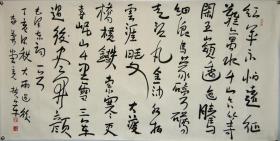 红军不怕远征
难万水千山只等
闲五岭逶迤腾
细浪乌蒙磅礴
走泥丸金沙水拍
云崖暖大渡
桥横铁索寒更
喜岷山千里雪三军
过后尽开颜
丁亥秋大雨过后